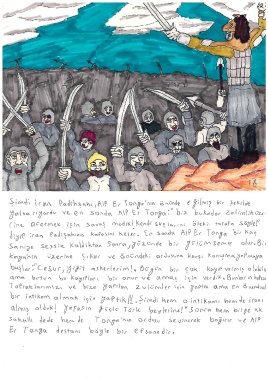 Şimdi İran Padişahı, Alp Er Tonga'nın önünde eğilmiş bir şekilde
yalvarıyordu ve en sonda Alp Er Tonga: "biz bu kadar zalimlik
için savaş
diyip İran Padişahının kafasını keser. En sonda Alp Er Tonga bir kaç
saniye sessiz kaldıktan sonra, yüzünde bir gülümseme olur. Bir
kayanın üzerine çıkar ve önündeki orduluna karşı konuşma yapmaya
başlar: "Cesur, yiğit askerlerim! Bugün bir çok kayıp vermiş olabiliriz
ama bütün bu kayıpları bir onur ve amaç için verdik. Bunlar
Topraklarımızı ve bize yapılan zulümler için
bir intikam almak için yaptık!!. Şimdi hem o intikamı hem de İranı
almış olduk! Yaşasın yüce Türk beylerine!" Sonra hem bilge ak
sakallı dede hem de Tonga'nın ordusu sevinerek bağırır ve Alp
Er Tonga destanı böyle bir efsanedir.